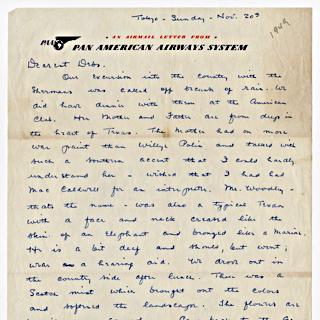 Tokyo - Sunday - Nov. 20th
1949
AN AIRMAIL LETTER FROM
PAA
PAN AMERICAN AIRWAYS SYSTEM
Dearest Debs.
Our excursion into the country with the
Shermans was called off because of rain. We
did have dinner with them at the American
Club. Her Mother and Father are from deep in
the heart of Texas. The Mother had on more
war paint than Willys Polin and talked with
such a southern accent that I could hardly
understand her - wished that I had had
Mac Caldwell for an interpreter. Mr. Woodly -
thats the name - was also a typical Texan
with a face and neck creased like the
skin of an elephant and bronzed like a Marine.
He is a bit deef and should, but wont,
wear a hearing aid. We drove out in
the country side after lunch. There was a
Scotch mist which brought out the colors
and softened the landscape. The flowers are